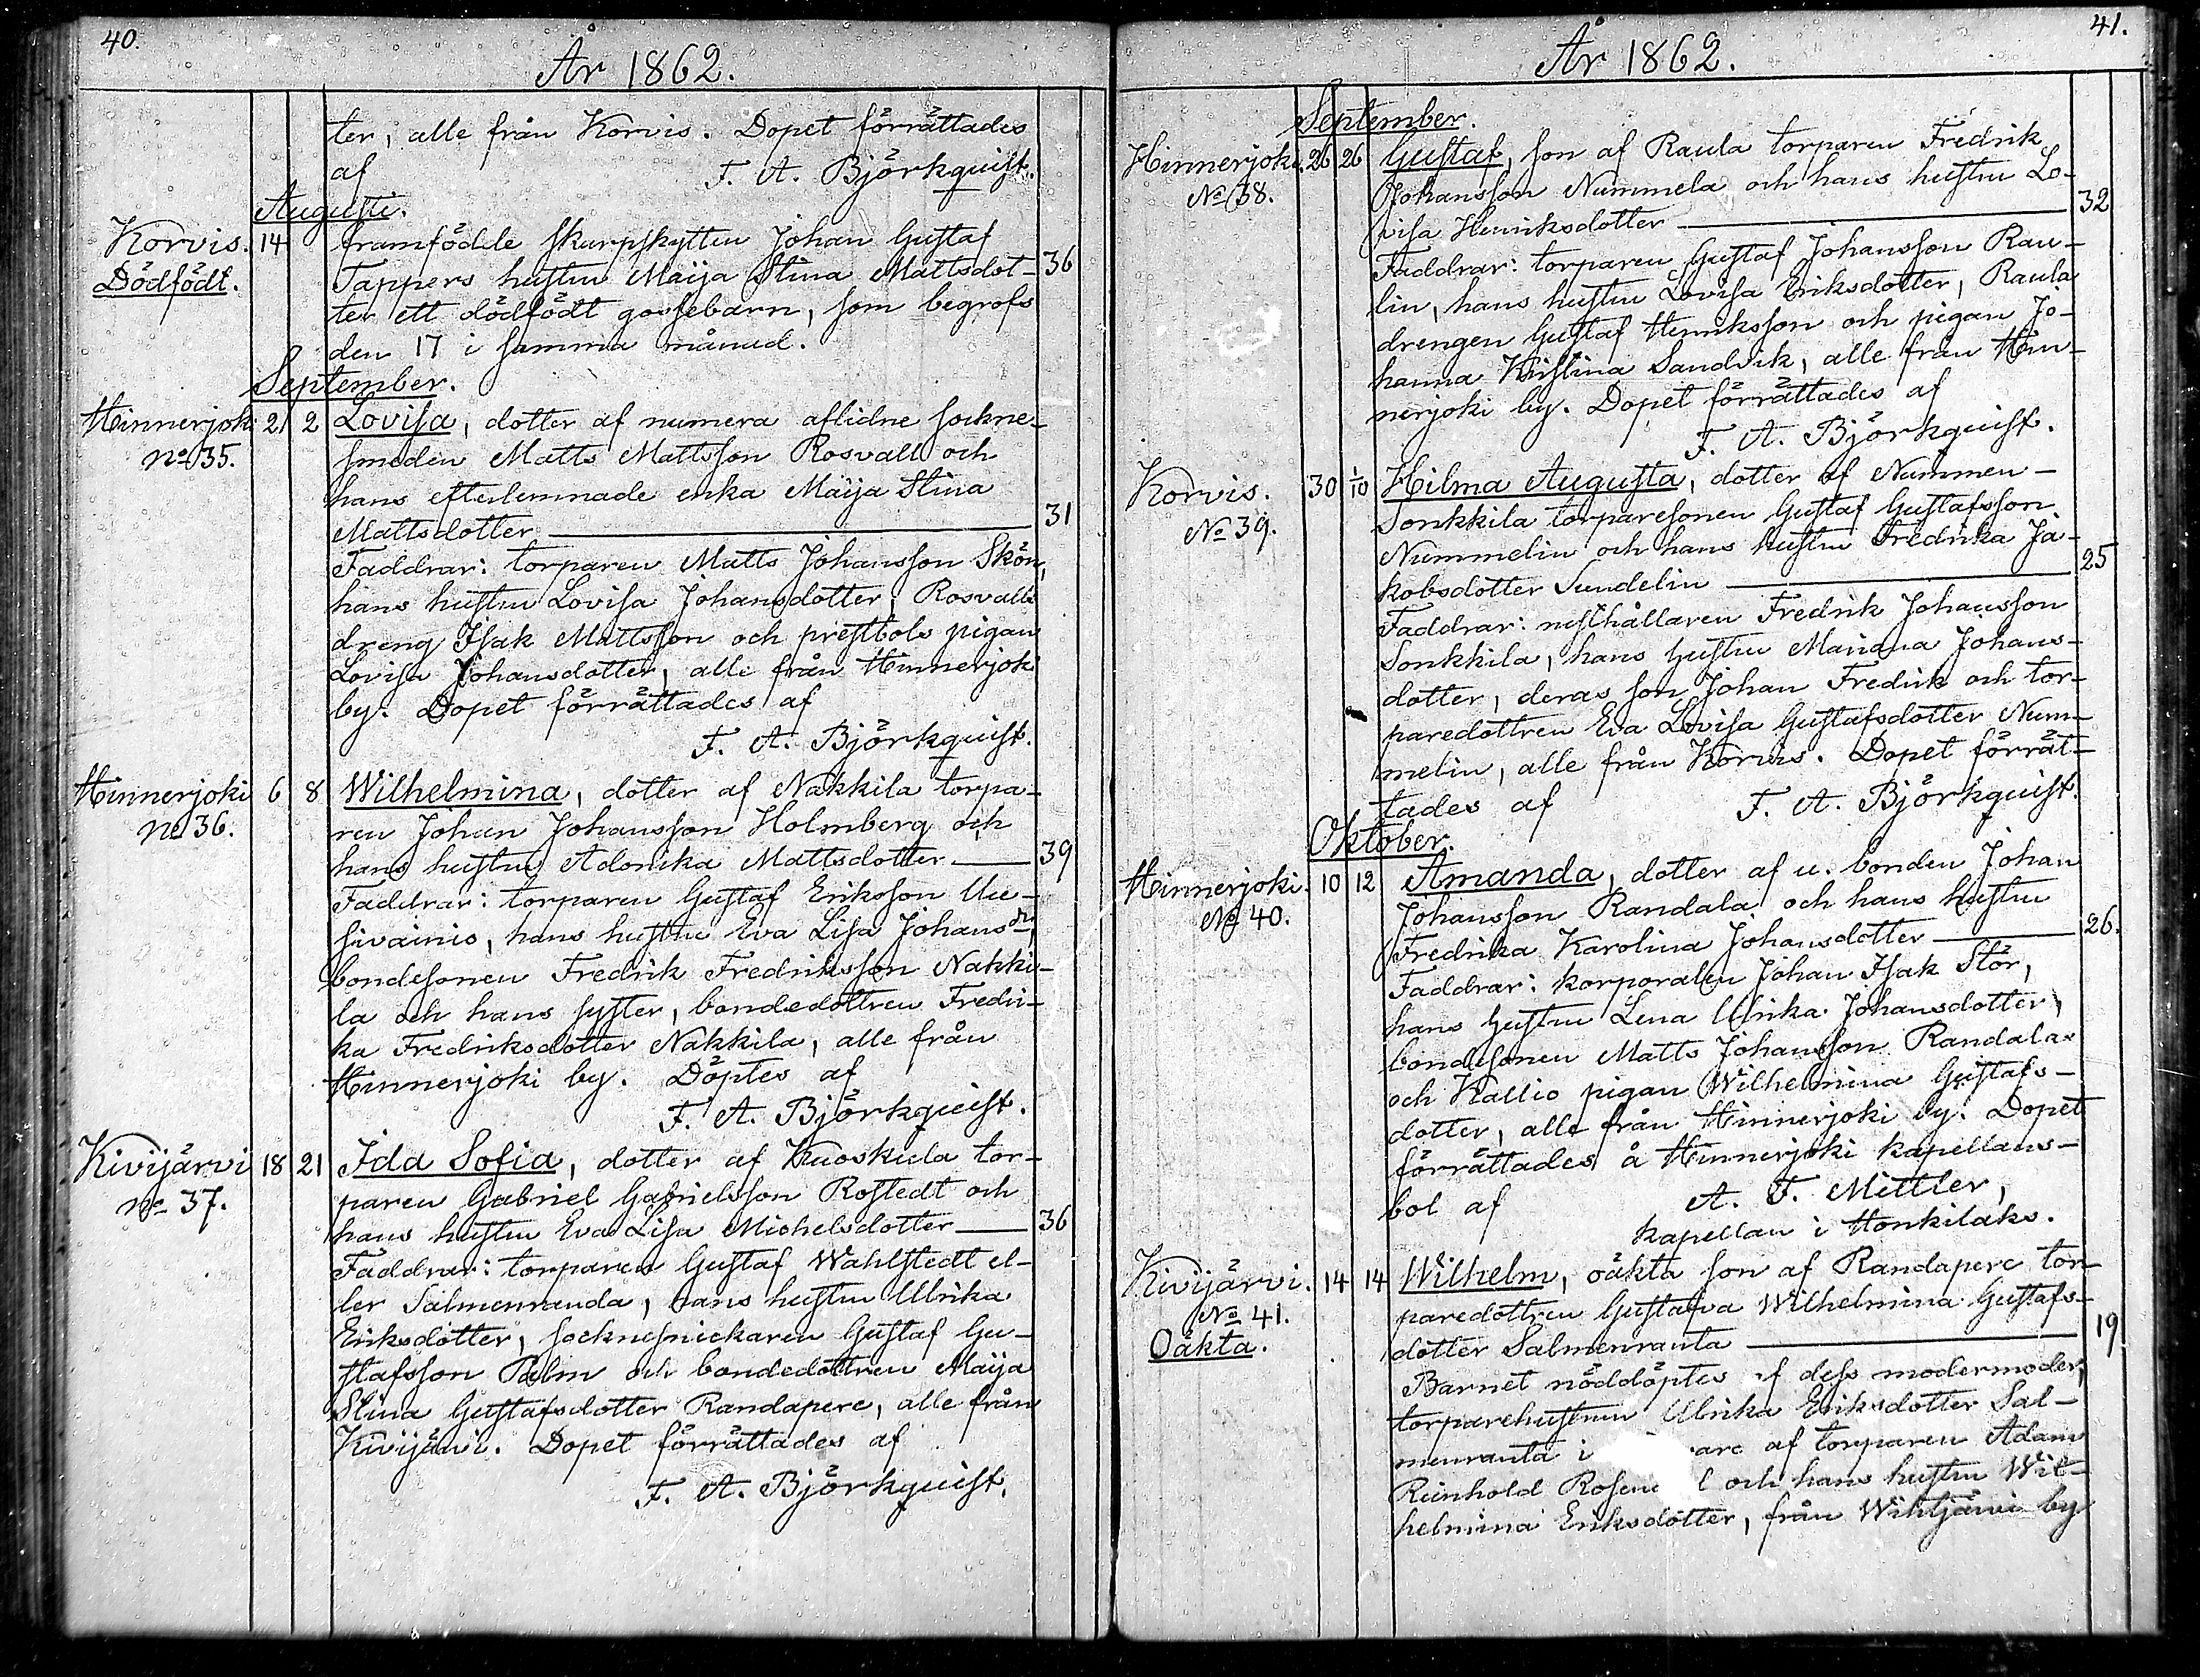 40.
År 1862.
ter, alle från Korvis. Dopet förrättades
af F. A. Björkquist.
Augusti.
Korvis. 14 framfödde skarpskytten Johan Gustaf
Dödfödt. Tappers hustru Maija Stina Mattsdot- 36
ter ett dödfödt gossebarn, som begrofs
den 17 i samma månad.
September.
Hinnerjoki 2 2 Lovisa, dotter af numera aflidne sockne-
No 35. smeden Matts Mattsson Rosvall och
hans efterlemnade enka Maija Stina
Mattsdotter 31
Faddrar: torparen Matts Johansson Skön,
hans hustru Lovisa Johansdotter, Rosvalls
dreng Isak Mattsson och prestbols pigan
Lovisa Johansdotter, alle från Hinnerjoki
by. Dopet förrättades af
F. A. Björkquist.
Hinnerjoki 6 8 Wilhelmina, dotter af Nakkila torpa-
No 36. ren Johan Johansson Holmberg och
hans hustru Adonika Mattsdotter 39
Faddrar: torparen Gustaf Eriksson Uu-
sivainio, hans hustru Eva Lisa Johansdr,
bondesonen Fredrik Fredriksson Nakki-
la och hans syster, bondedottren Fredri-
ka Fredriksdotter Nakkila, alle från
Hinnerjoki by. Döptes af
F. A. Björkquist.
Kivijärvi 18 21 Ida Sofia, dotter af Kuoskula tor-
No 37. paren Gabriel Gabrielsson Rostedt och
hans hustru Eva Lisa Michelsdotter 36
Faddrar: torparen Gustaf Wahlstedt el-
ler Salmenranda, hans hustru Ulrika
Eriksdotter, socknesnickaren Gustaf Gu-
stafsson Palm och bondedottren Maija
Stina Gustafsdotter Randapere, alle från
Kivijärvi. Dopet förrättades af
F. A. Björkquist.
41.
År 1862.
September.
Hinnerjoki. 26 26 Gustaf, son af Raula torparen Fredrik
No 38. Johansson Nummela och hans hustru Lo-
visa Henriksdotter 32
Faddrar: torparen Gustaf Johansson Rau-
lin, hans hustru Lovisa Eriksdotter, Raula
drengen Gustaf Henriksson och pigan Jo-
hanna Kristina Sandvik, alle från Hin-
nerjoki by. Dopet förrättades af
F. A. Björkquist.
Korvis. 30 1/10 Hilma Augusta, dotter af Nummen-
No 39. Sonkkila torparesonen Gustaf Gustafsson
Nummelin och hans hustru Fredrika Ja-
kobsdotter Sundelin 25
Faddrar: rusthållaren Fredrik Johansson
Sonkkila, hans hustru Mariana Johans-
dotter, deras son Johan Fredrik och tor-
paredottren Eva Lovisa Gustafsdotter Num-
melin, alle från Korvis. Dopet förrät-
tades af F. A. Björkquist.
Oktober.
Hinnerjoki. 10 12 Amanda, dotter af u. bonden Johan
No 40. Johansson Randala och hans hustru
Fredrika Karolina Johansdotter 26.
Faddrar: korporalen Johan Isak Stör,
hans hustru Lena Ulrika Johansdotter,
bondesonen Matts Johansson Randala
och Kallio pigan Wilhelmina Gustafs-
dotter, alle från Hinnerjoki by. Dopet
förrättades å Hinnerjoki kapellans-
bol af A. F. Mittler,
kapellan i Honkilaks.
Kivijärvi. 14 14 Wilhelm, oäkta son af Randapere tor-
No 41. paredottren Gustafva Wilhelmina Gustafs-
Oäkta. dotter Salmenranta 19
Barnet nöddöptes af dess modermoder,
torparehustrun Ulrika Eriksdotter Sal-
menranta i are af torparen Adam
Reinhold Rosen l och hans hustru Wil-
helmina Eriksdotter, från Wihtjärvi by